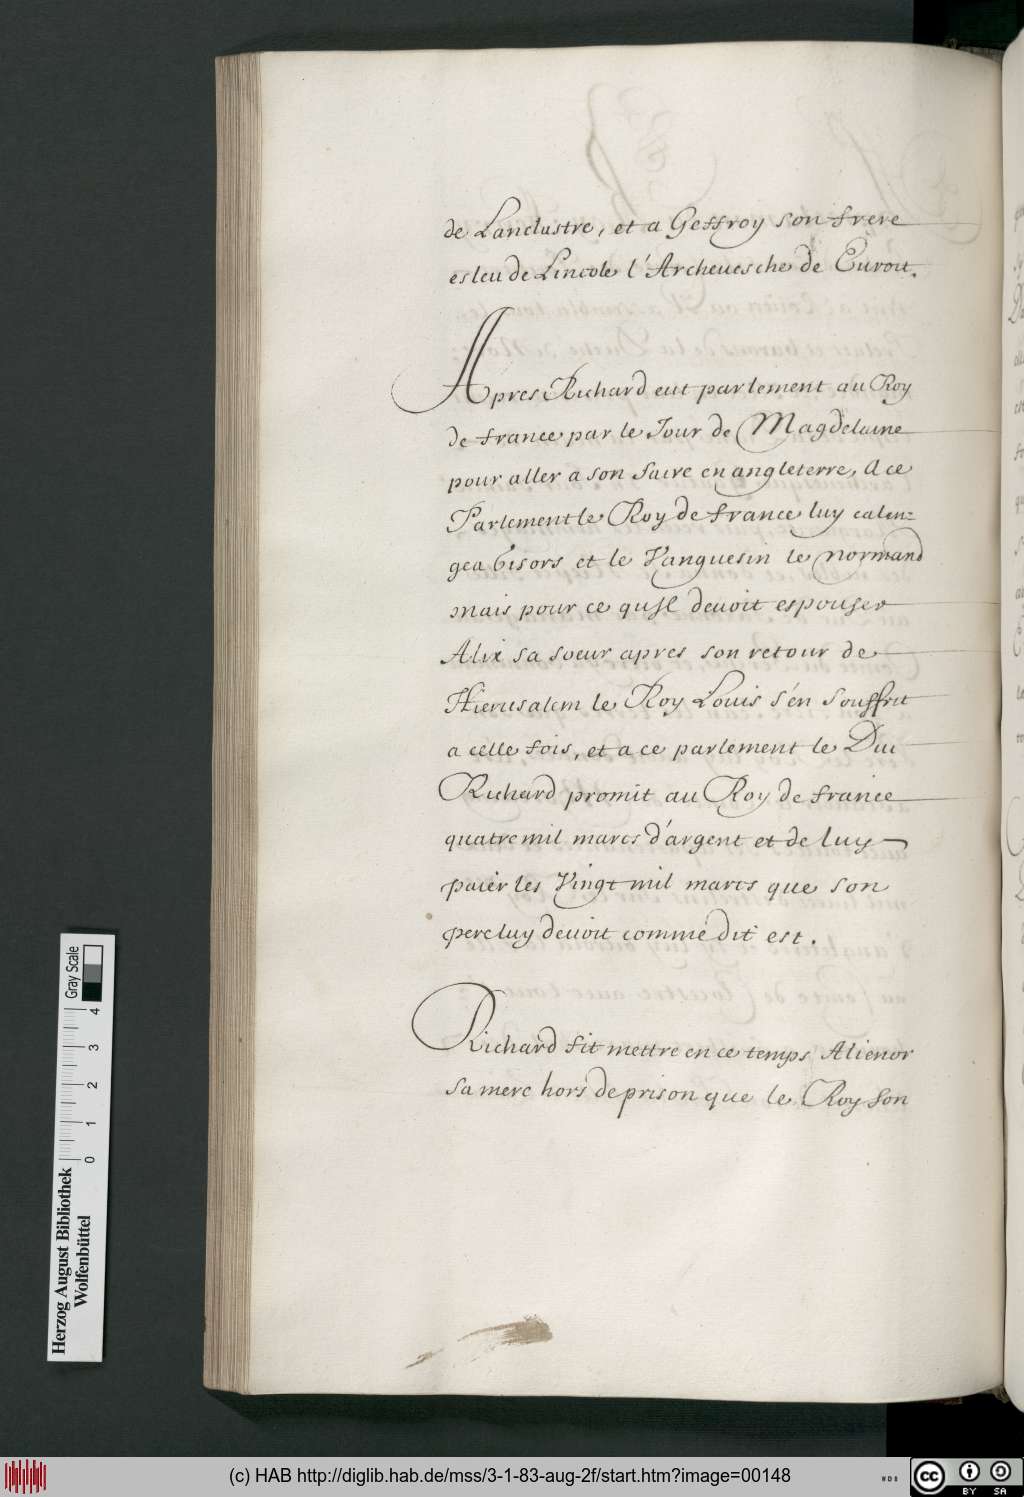 de Lanclastre, et a Geffroy son frere
esleu de Lincole l'Archeuesche de Euroit.
Apres Richard eut parlement au Roy
de france par le Jour de Magdelaine
pour aller a son faire en angleterre, A ce
Parlement le Roy de france luy calen=
gea Gisors et le Vanguesin le normand
mais pour ce qu'Jl deuoit espouser
Alix sa soeur apres son retour de
Hierusalem le Roy Louis s'en souffrit
a celle fois, et a ce parlement le Duc
Richard promit au Roy de france
quatre mil marcs d'argent et de luy
paier les Vingt mil marcs que son
pere luy deuoit comme dit est.
Richard fit mettre en ce temps Alienor
sa mere hors de prison que le Roy son
Gray Scale
0 1 2 3 4
Herzog August Bibliothek
Wolfenbüttel
(c) HAB http://diglib.hab.de/mss/3-1-83-aug-2f/start.htm?image=00148
WDB
cc
BY SA